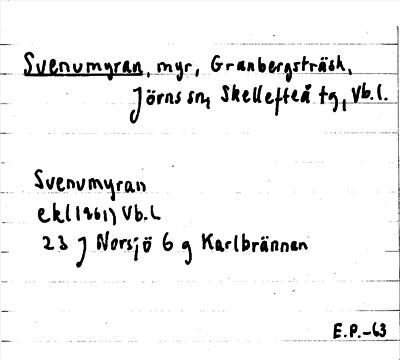 Svenumyran, myr, Granbergsträsk,
Jörns sn, Skellefteå tg, Vb.l.
Svenumyran
ekl(1961) Vb.l
23 J Norsjö 6 g Karlbrännan
E.P.-63